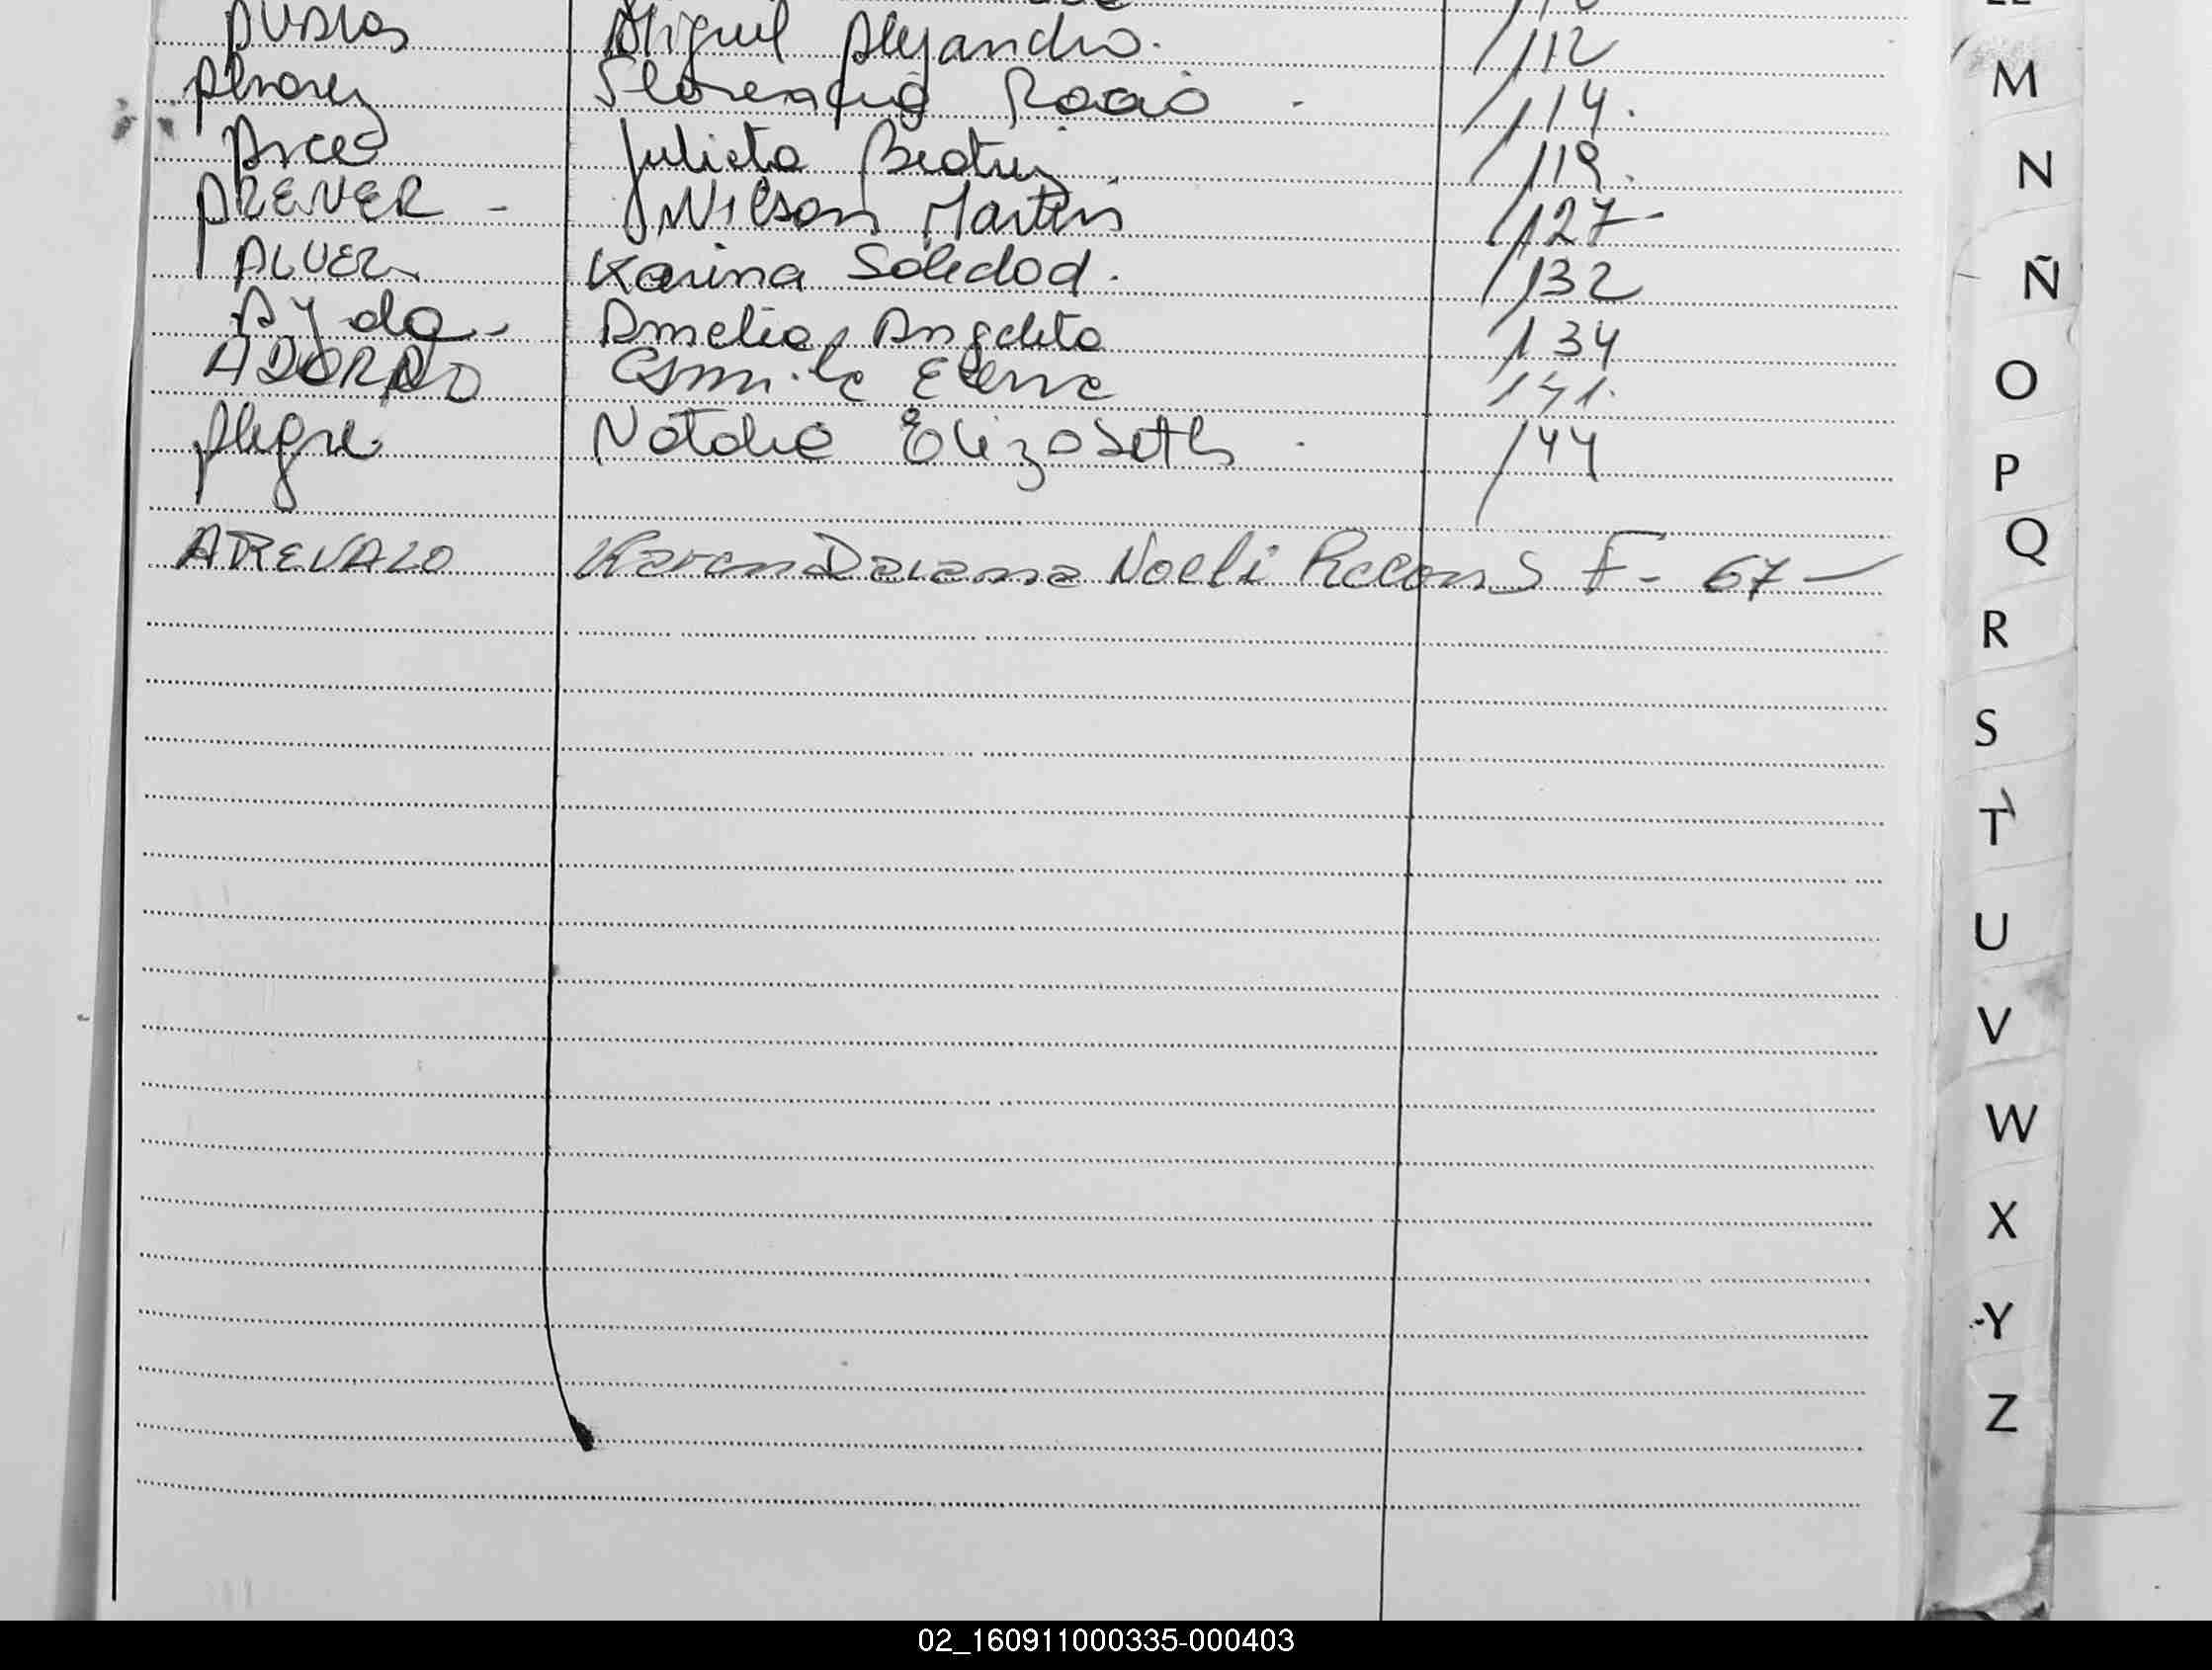 Miguel Alejandro. 112
Alvarez Florencia Rocio . 114.
Arce Julieta Beatriz. 119.
ARENER - Nilson Martin 127-
ALVEZ Karina Soledad. 132
Ayala- Amelia Angelita 134
ADORNO Camila Elena 141.
Alegre Natalia Elizabeth . 144
AREVALO Karen Daiana Noeli Recon S F- 67-
M
N
Ñ
O
P
Q
R
S
T
U
V
W
X
Y
Z
02_160911000335-000403